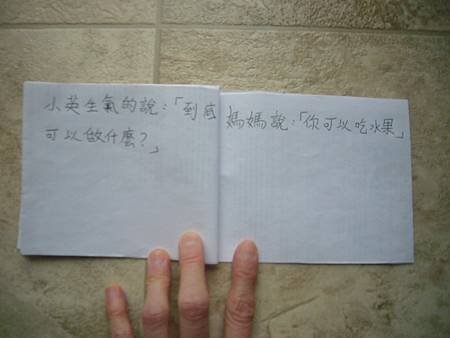 小英生氣的說：「到底
可以做什麼？」
媽媽說：「你可以吃水果」